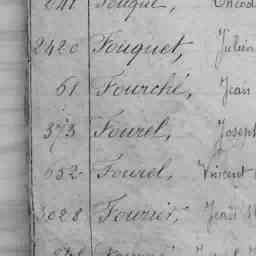 2420 Fouquet, Julien
61 Fourché, Jean
373 Fourel, Joseph
652 Fourel, Vincent
3028 Fourier,